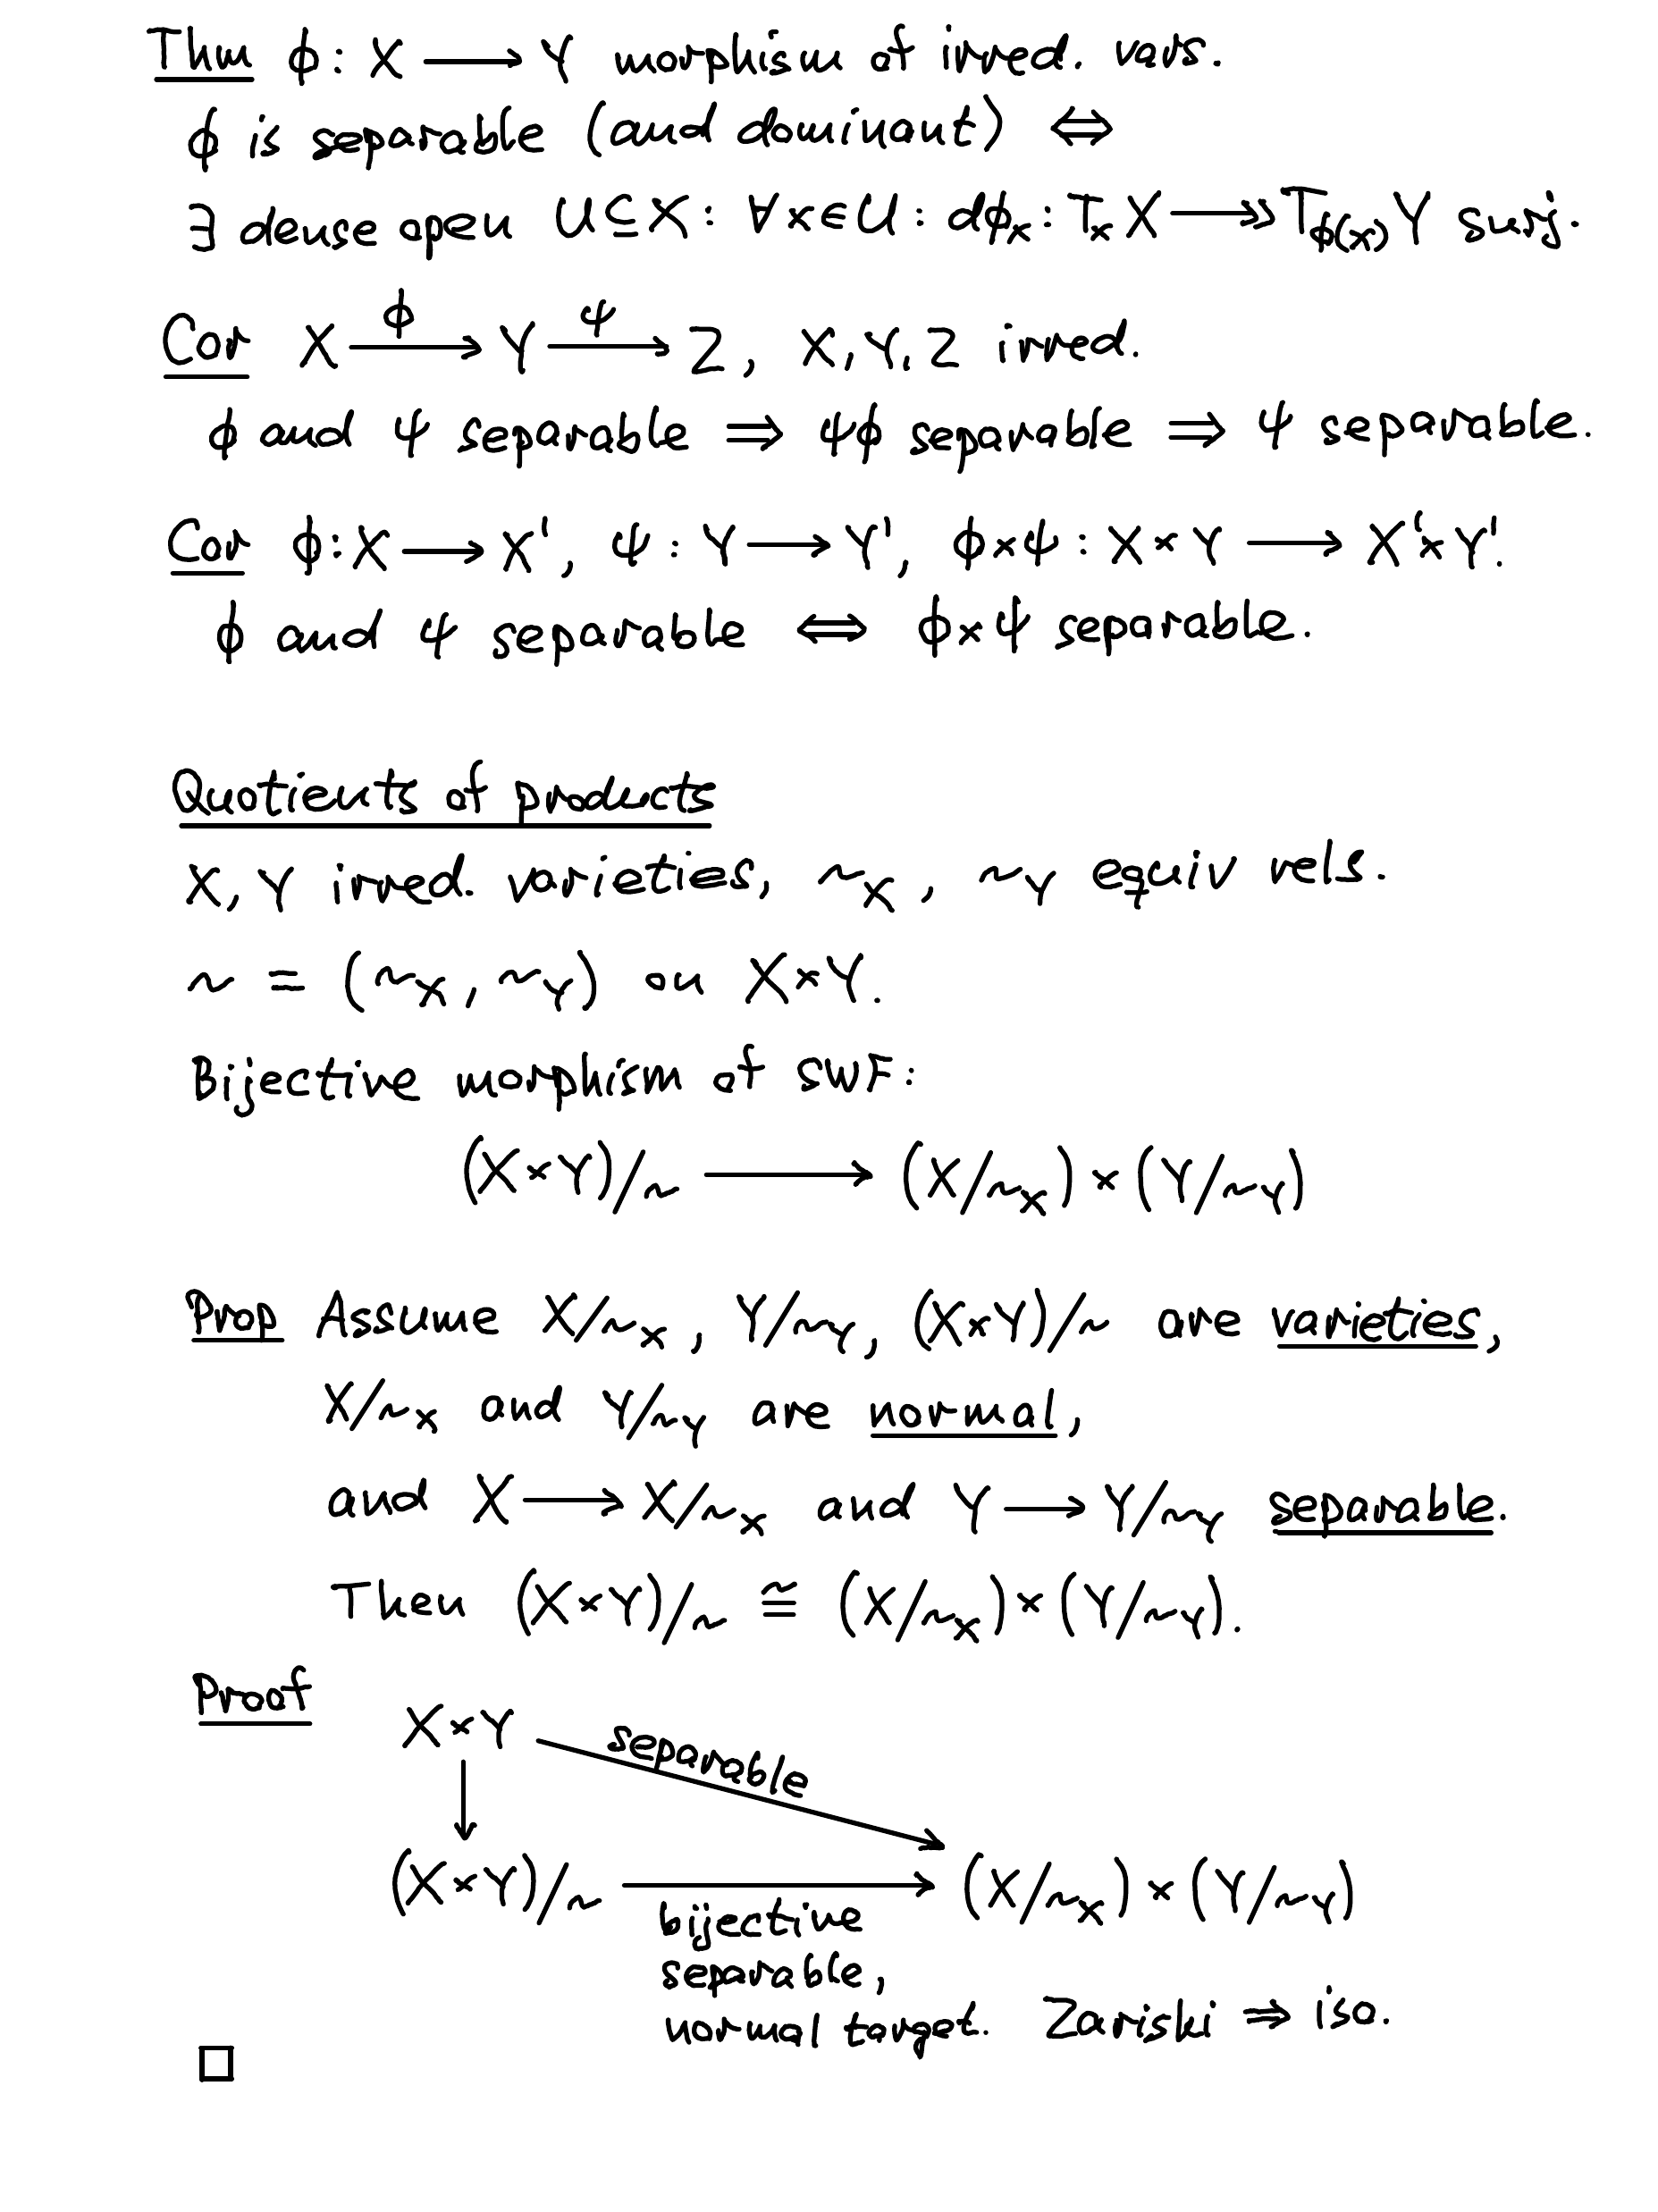 Thm φ : X ⟶ Y morphism of irred. vars.
φ is separable (and dominant) ⇔
∃ dense open U ⊆ X : ∀ x ∈ U : dφₓ : TₓX ↠ T_{φ(x)}Y surj.
Cor X —φ→ Y —ψ→ Z, X, Y, Z irred.
φ and ψ separable ⇒ ψφ separable ⇒ ψ separable.
Cor φ : X ⟶ X', ψ : Y ⟶ Y', φ×ψ : X×Y ⟶ X'×Y'.
φ and ψ separable ⇔ φ×ψ separable.
Quotients of products
X, Y irred. varieties, ~_X, ~_Y equiv rels.
~ = (~_X, ~_Y) on X×Y.
Bijective morphism of SWF:
(X×Y)/~ ⟶ (X/~_X) × (Y/~_Y)
Prop Assume X/~_X, Y/~_Y, (X×Y)/~ are varieties,
X/~_X and Y/~_Y are normal,
and X ⟶ X/~_X and Y ⟶ Y/~_Y separable.
Then (X×Y)/~ ≅ (X/~_X) × (Y/~_Y).
Proof
X×Y
separable
(X×Y)/~ ⟶ (X/~_X) × (Y/~_Y)
bijective
separable,
normal target. Zariski ⇒ iso.
□